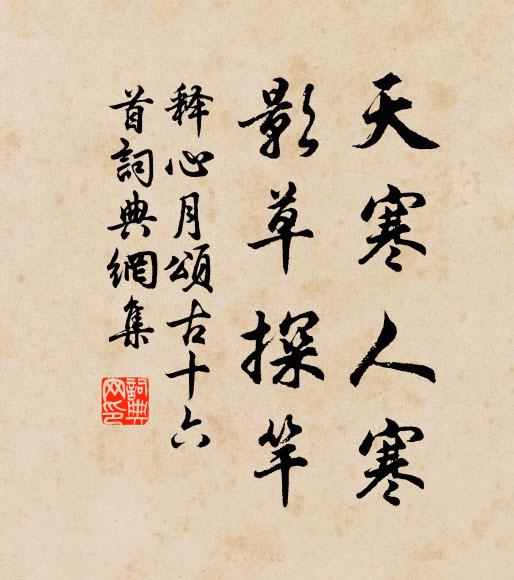 天寒人寒
影草探竿
释心月頌古十六
首詞典網集
詞典網印